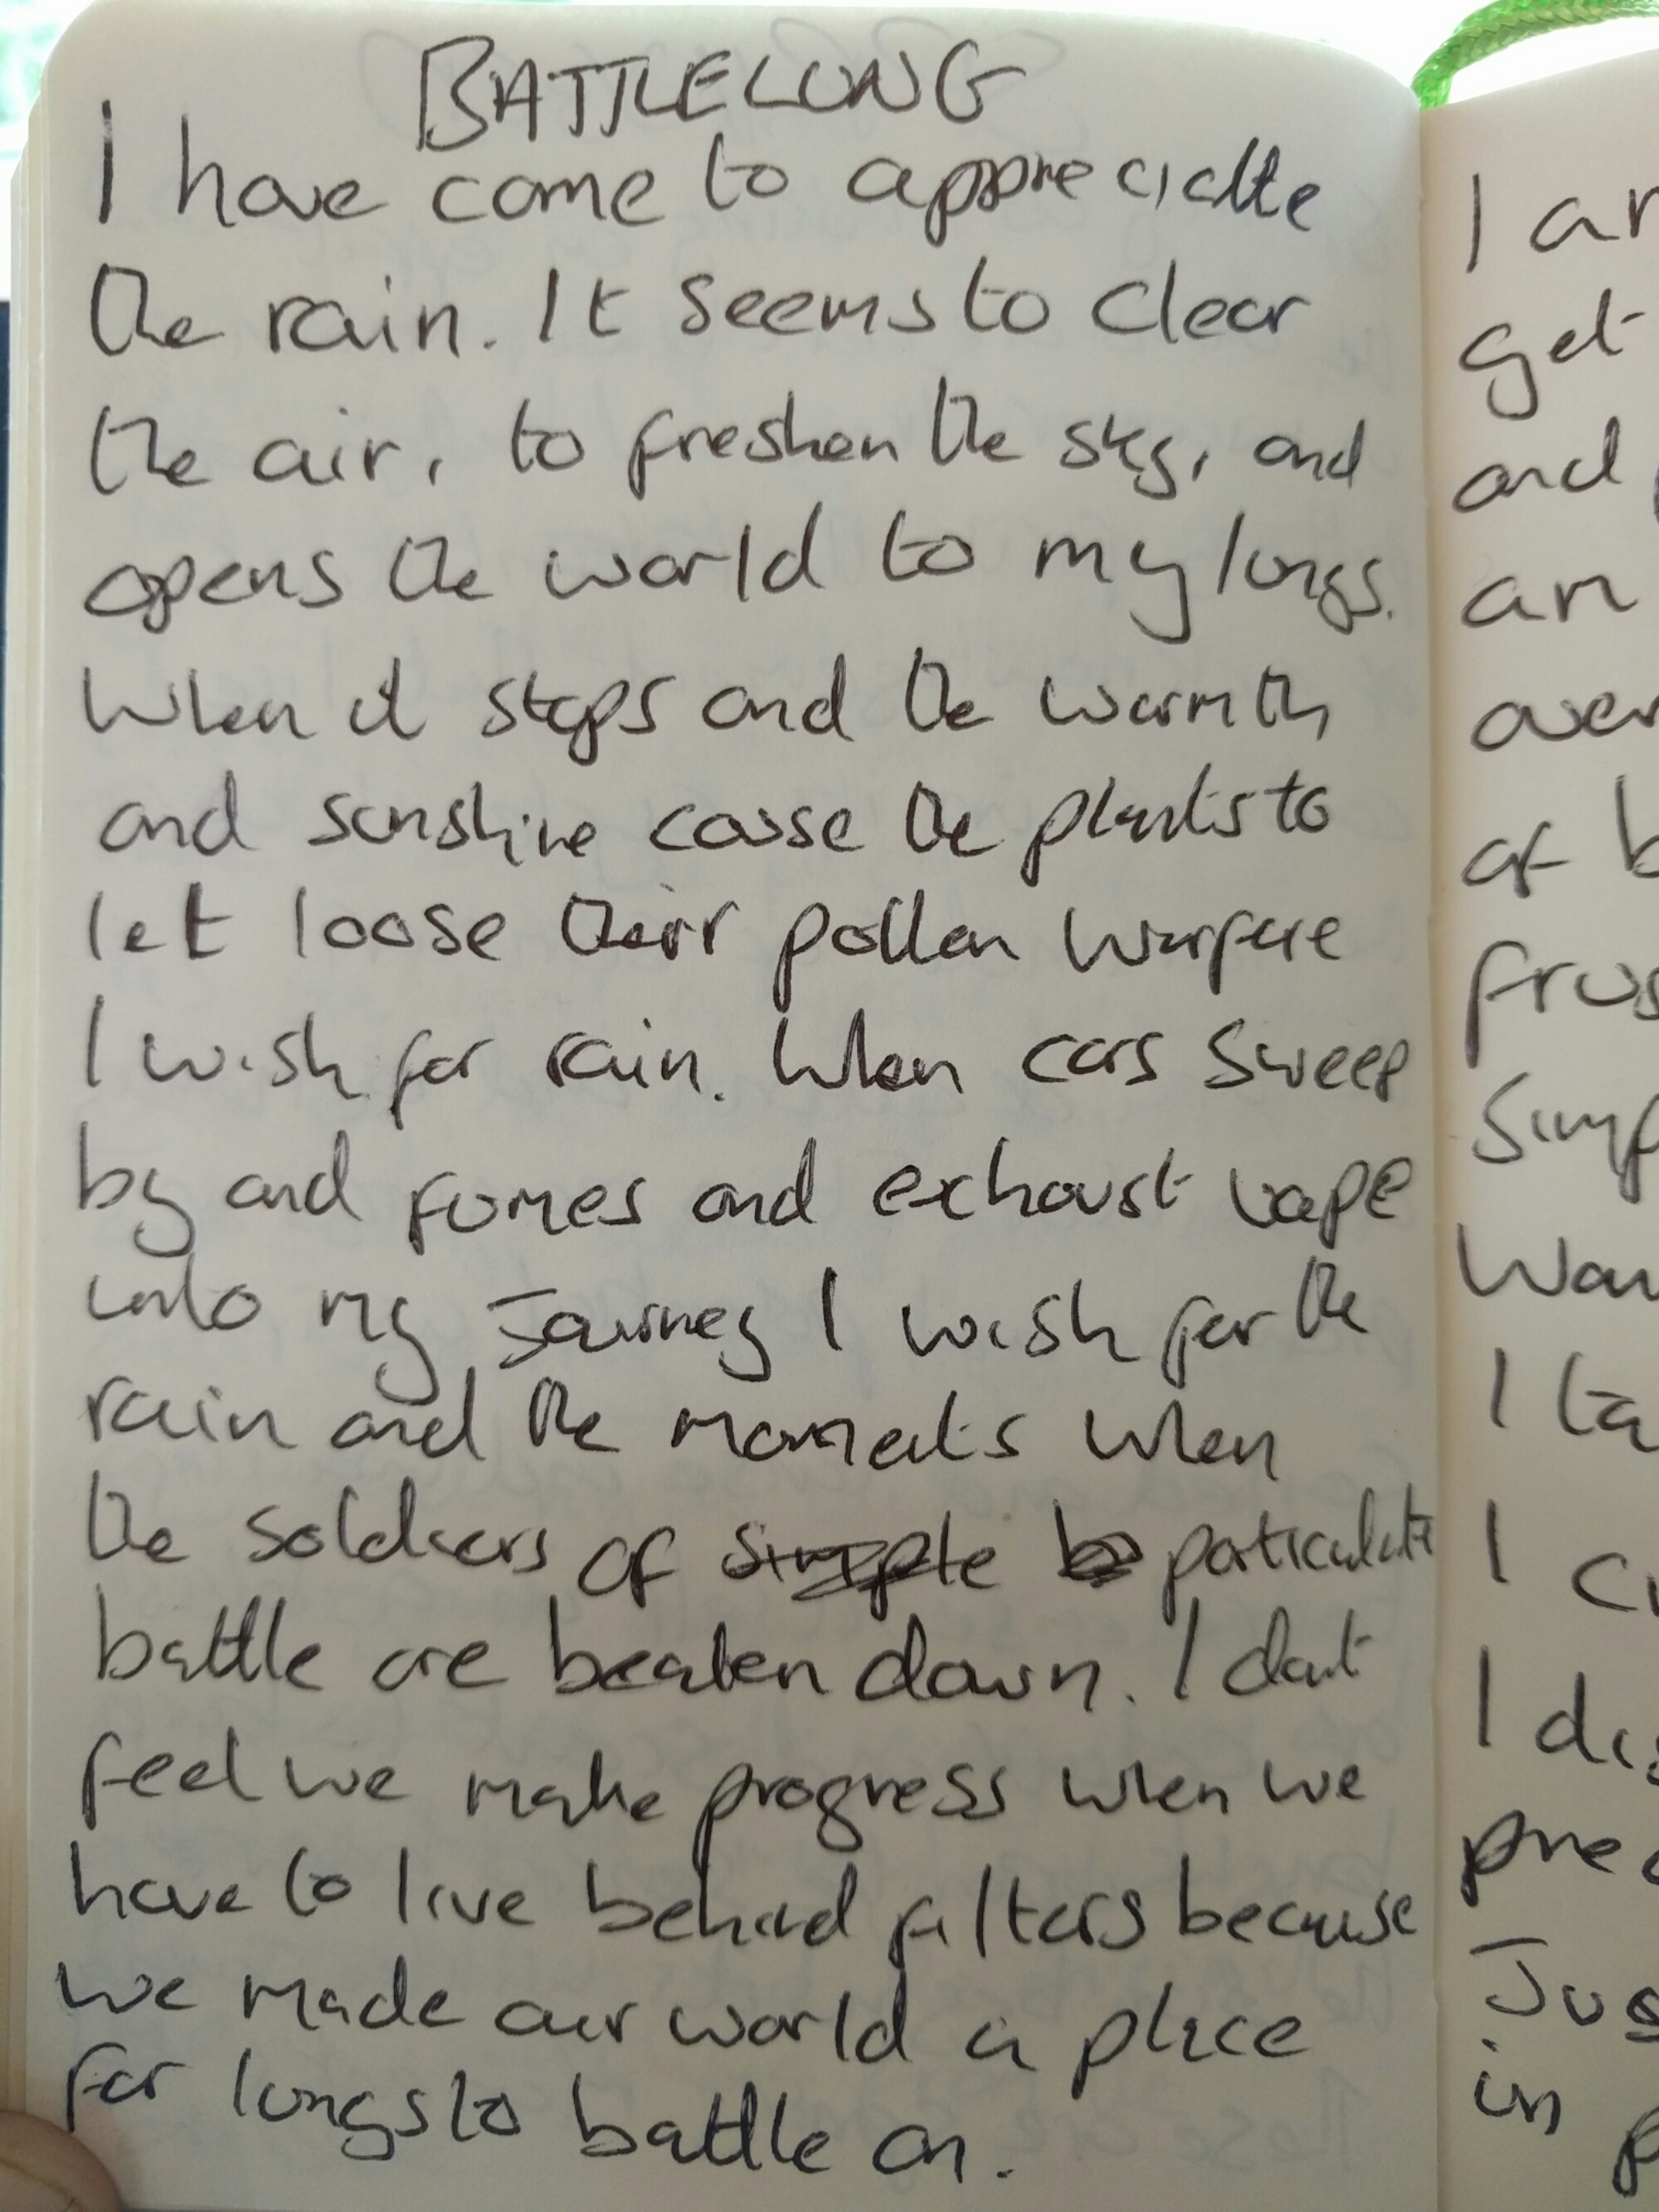 BATTLELUNG
I have come to appreciate
the rain. It seems to clear
the air, to freshen the sky, and
opens the world to my lungs.
When it stops and the warmth
and sunshine cause the plants to
let loose their pollen warfare
I wish for rain. When cars sweep
by and fumes and exhaust vape
into my journey I wish for the
rain and the moments when
the soldiers of simple particulate
battle are beaten down. I don't
feel we make progress when we
have to live behind filters because
we made our world a place
for lungs to battle on.
I
get
and
an
of b
I
I
I
in